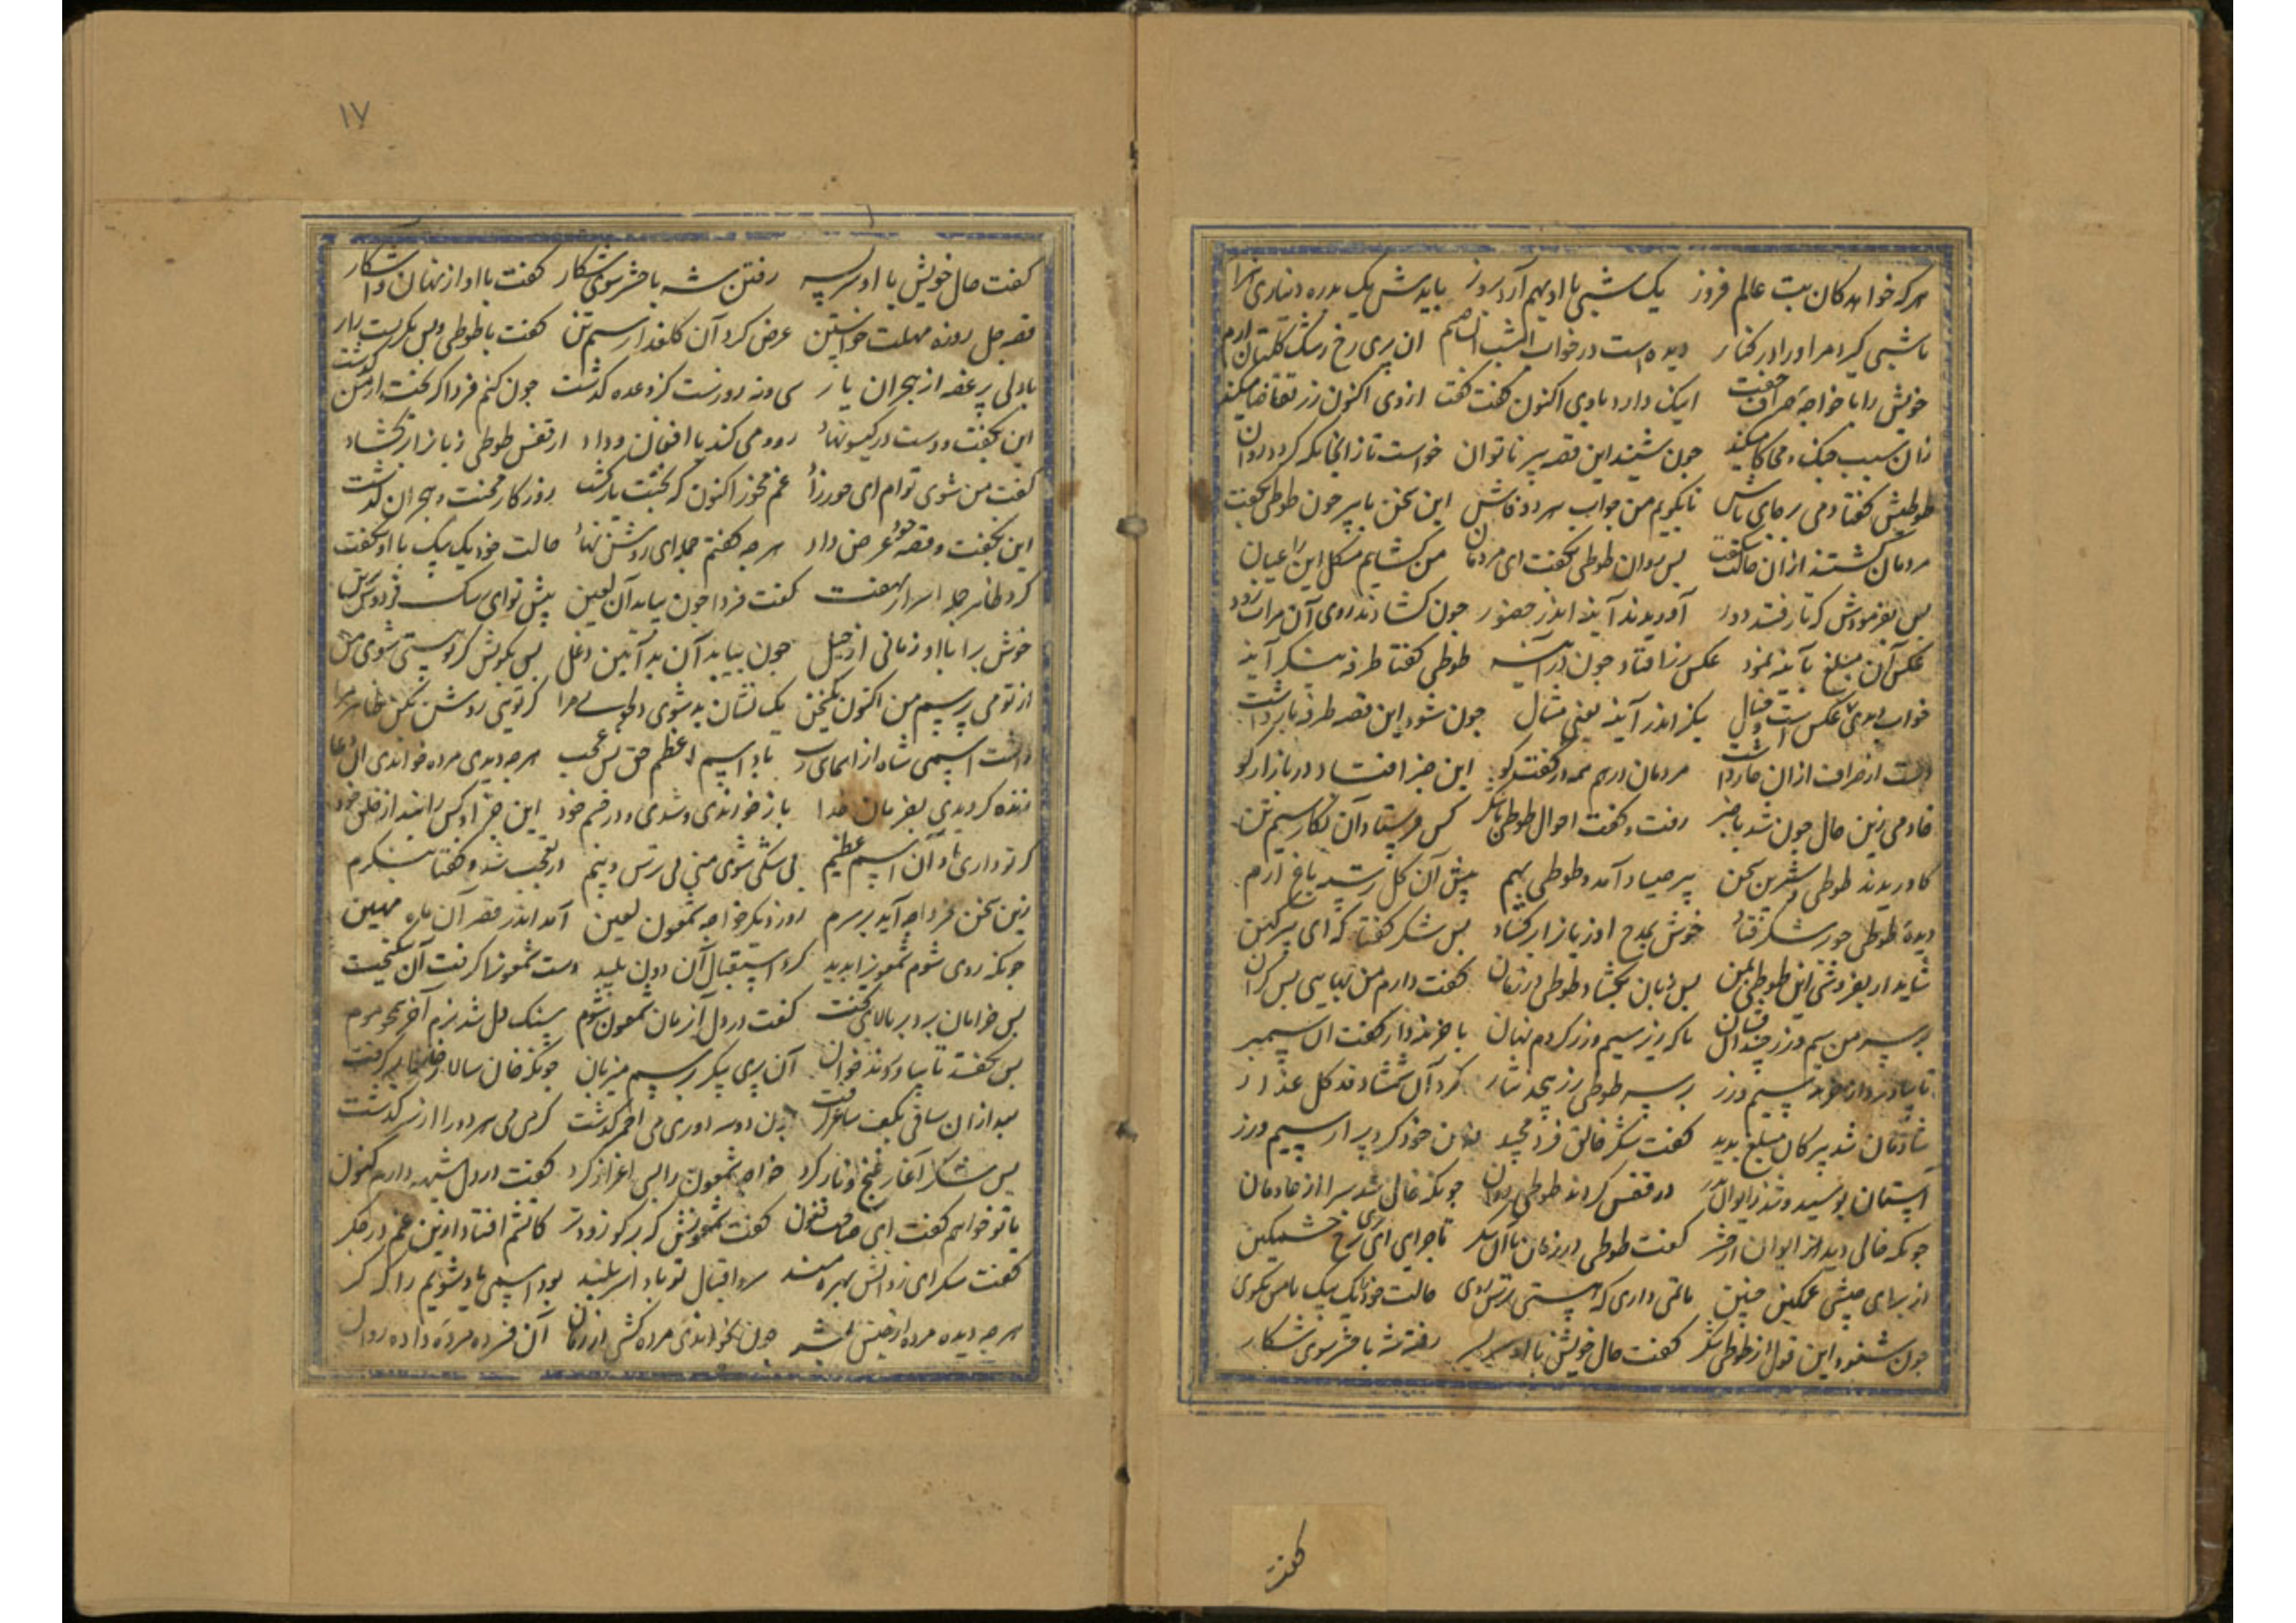 هرکه خواهد کان بت عالم فروز یک شبی با او بهم آرد بروز بایدش یک بدره دیناری
تا شبی گیرد مر او را در کنار دیده است در خواب امشب آن پری رخ رشک گلستان ارم
خویش را با خواجه صراف جفت اینک دارد با وی اکنون گفت گفت از وی اکنون زر تقاضا میکند
زان سبب جنک و محاکا میکند جون شنید این قصه پیر ناتوان خواست تا زانجایکه گردد روان
طوطیش گفتا دمی بر جای باش تا بگویم من جواب هر دو فاش این سخن با پیر جون طوطی بگفت
مردمان گشتند ازان حالت شگفت پس روان طوطی بگفت ای مردمان من گشایم مشکل این را عیان
پس بفرمودش که تا رفتند دور آوریدند آینه اندر حضور جون گشادند روی آن مرات زود
عکس آن مبلغ بآینه نمود عکس زر افتاد جون در آینه طوطی گفتا طرفه بنگر آینه
خواب دیدی عکس است و خیال بنگر اندر آینه یعنی مثال جون شنود این قصه طرفه بابرداشت
دست از صراف ازان جا برداشت مردمان در هم همه در گفتگو این خبر افتاد در بازار کو
خادمی زین حال جون شد باخبر رفت و گفت احوال طوطی با شکر کس فرستاد آن نگار سیم تن
کاورید طوطی شیرین سخن پیر صیاد آمد و طوطی بهم پیش آن گل رشک باغ ارم
دیده طوطی جو بر شکر فتاد خوش بمدح او زبان را برگشاد پس شکر گفتا که ای پیر کهن
شاید ار بفروشی این طوطی بمن پس زبان بگشاد طوطی در زمان گفت دارم من بهایی بس گران
بر سر من سیم و زر چندان فشان تا که زیر سیم و زر گردم نهان با خزینه دار گفت آن سیمبر
تا بیاورد از خزینه سیم و زر بر سر طوطی زر بیحد نثار کرد آن شمشاد قد گل عذار
شادمان شد پیر کان مبلغ بدید گفت شکر خالق فرد مجید دامن خود کرد پر از سیم و زر
آستان بوسید و شد ز ایوان بدر در قفس کردند طوطی را روان جونکه خالی شد سرا از خادمان
جونکه خالی دید ایوان از حشر گفت طوطی در زمان با آن شکر ماجرای ای پری رخ خشمگین
از برای جیستی غمگین جنین ماتمی داری که هستی ترش روی حالت خود یک بیک با من بگوی
جون شنود این قول از طوطی شکر گفت حال خویش با او سر بسر رفتن شه با حشر سوی شکار
گفت
۱۷
گفت حال خویش با او سر بسر رفتن شه با حشر سوی شکار گفت با او از نهان و آشکار
قصه جل روزه مهلت خواستن عرض کرد آن گلعذار سیم تن گفت با طوطی و پس بگریست زار
با دلی پر غصه از هجران یار سی و نه روزست کز وعده گذشت جون کنم فردا که بخت از من گذشت
این بگفت و دست در گیسو نهاد رود می کند با افغان و داد از قفس طوطی زبان را بر گشاد
گفت من شوی توام ای حورزاد غم مخور اکنون که بختت یار گشت روزگار محنت و هجران گذشت
این بگفت و قصه خود عرض داد هر جه گفتم جمله ای روشن نهاد حالت خود یک بیک با او بگفت
کرد ظاهر جمله اسرار نهفت گفت فردا جون بیاید آن لعین پیش تو ای رشک فردوس برین
خوش برا با او زمانی از حیل جون بیاید آن بد آیین دغل پس بگویش گر تو هستی شوی من
از تو می پرسم من اکنون یک سخن یک نشان بد شوی دلجوی مرا گر تویی روشن بکن ظاهر مرا
داشت اسمی شاه از اسمای رب یاد اسم اعظم حق بس عجب هر جه دیدی مرده خواندی آن دعا
زنده کردیدی بفرمان خدا باز خواندی و شدی در جسم خود این هنر از کس ندانند از خلق خود
گر تو داری یاد آن اسم عظیم بی شکی شوی منی بی ترس و بیم در تعجب شد و گفتا بنگرم
زین سخن فردا جه آید بر سرم روز دیگر خواجه شمعون لعین آمد اندر قصر آن ماه مهین
جونکه روی شوم شمعون را بدید کرد استقبال آن دون پلید دست شمعون را گرفت آن نیکبخت
پس خرامان برد بر بالای تخت گفت در دل آن زمان شمعون شوم سنک دل شد نرم آخر همجو موم
پس بگفتند تا بیاوردند خوان آن پری پیکر برسم میزبان جونکه خان سالار خان را بر گرفت
بعد ازان ساقی بکف ساغر گرفت جون دو سه دوری می احمر گذشت گرمی می هر دو را از سر گذشت
پس شکر آغاز غنج و ناز کرد خواجه شمعون را بسی اعزاز کرد گفت در دل شبهه دارم کنون
با تو خواهم گفت ای صاحب فنون گفت شمعونش که بر گو زودتر کاتشم افتاد ازین غم در جگر
گفت شکر ای ز دانش بهره مند سرو اقبال تو بادا سربلند بود اسمی یاد شویم را که گر
هر جه دیده مرده از جنس بشر جون بخواندی مرده گشتی در زمان آن فسرده مرده داده روان